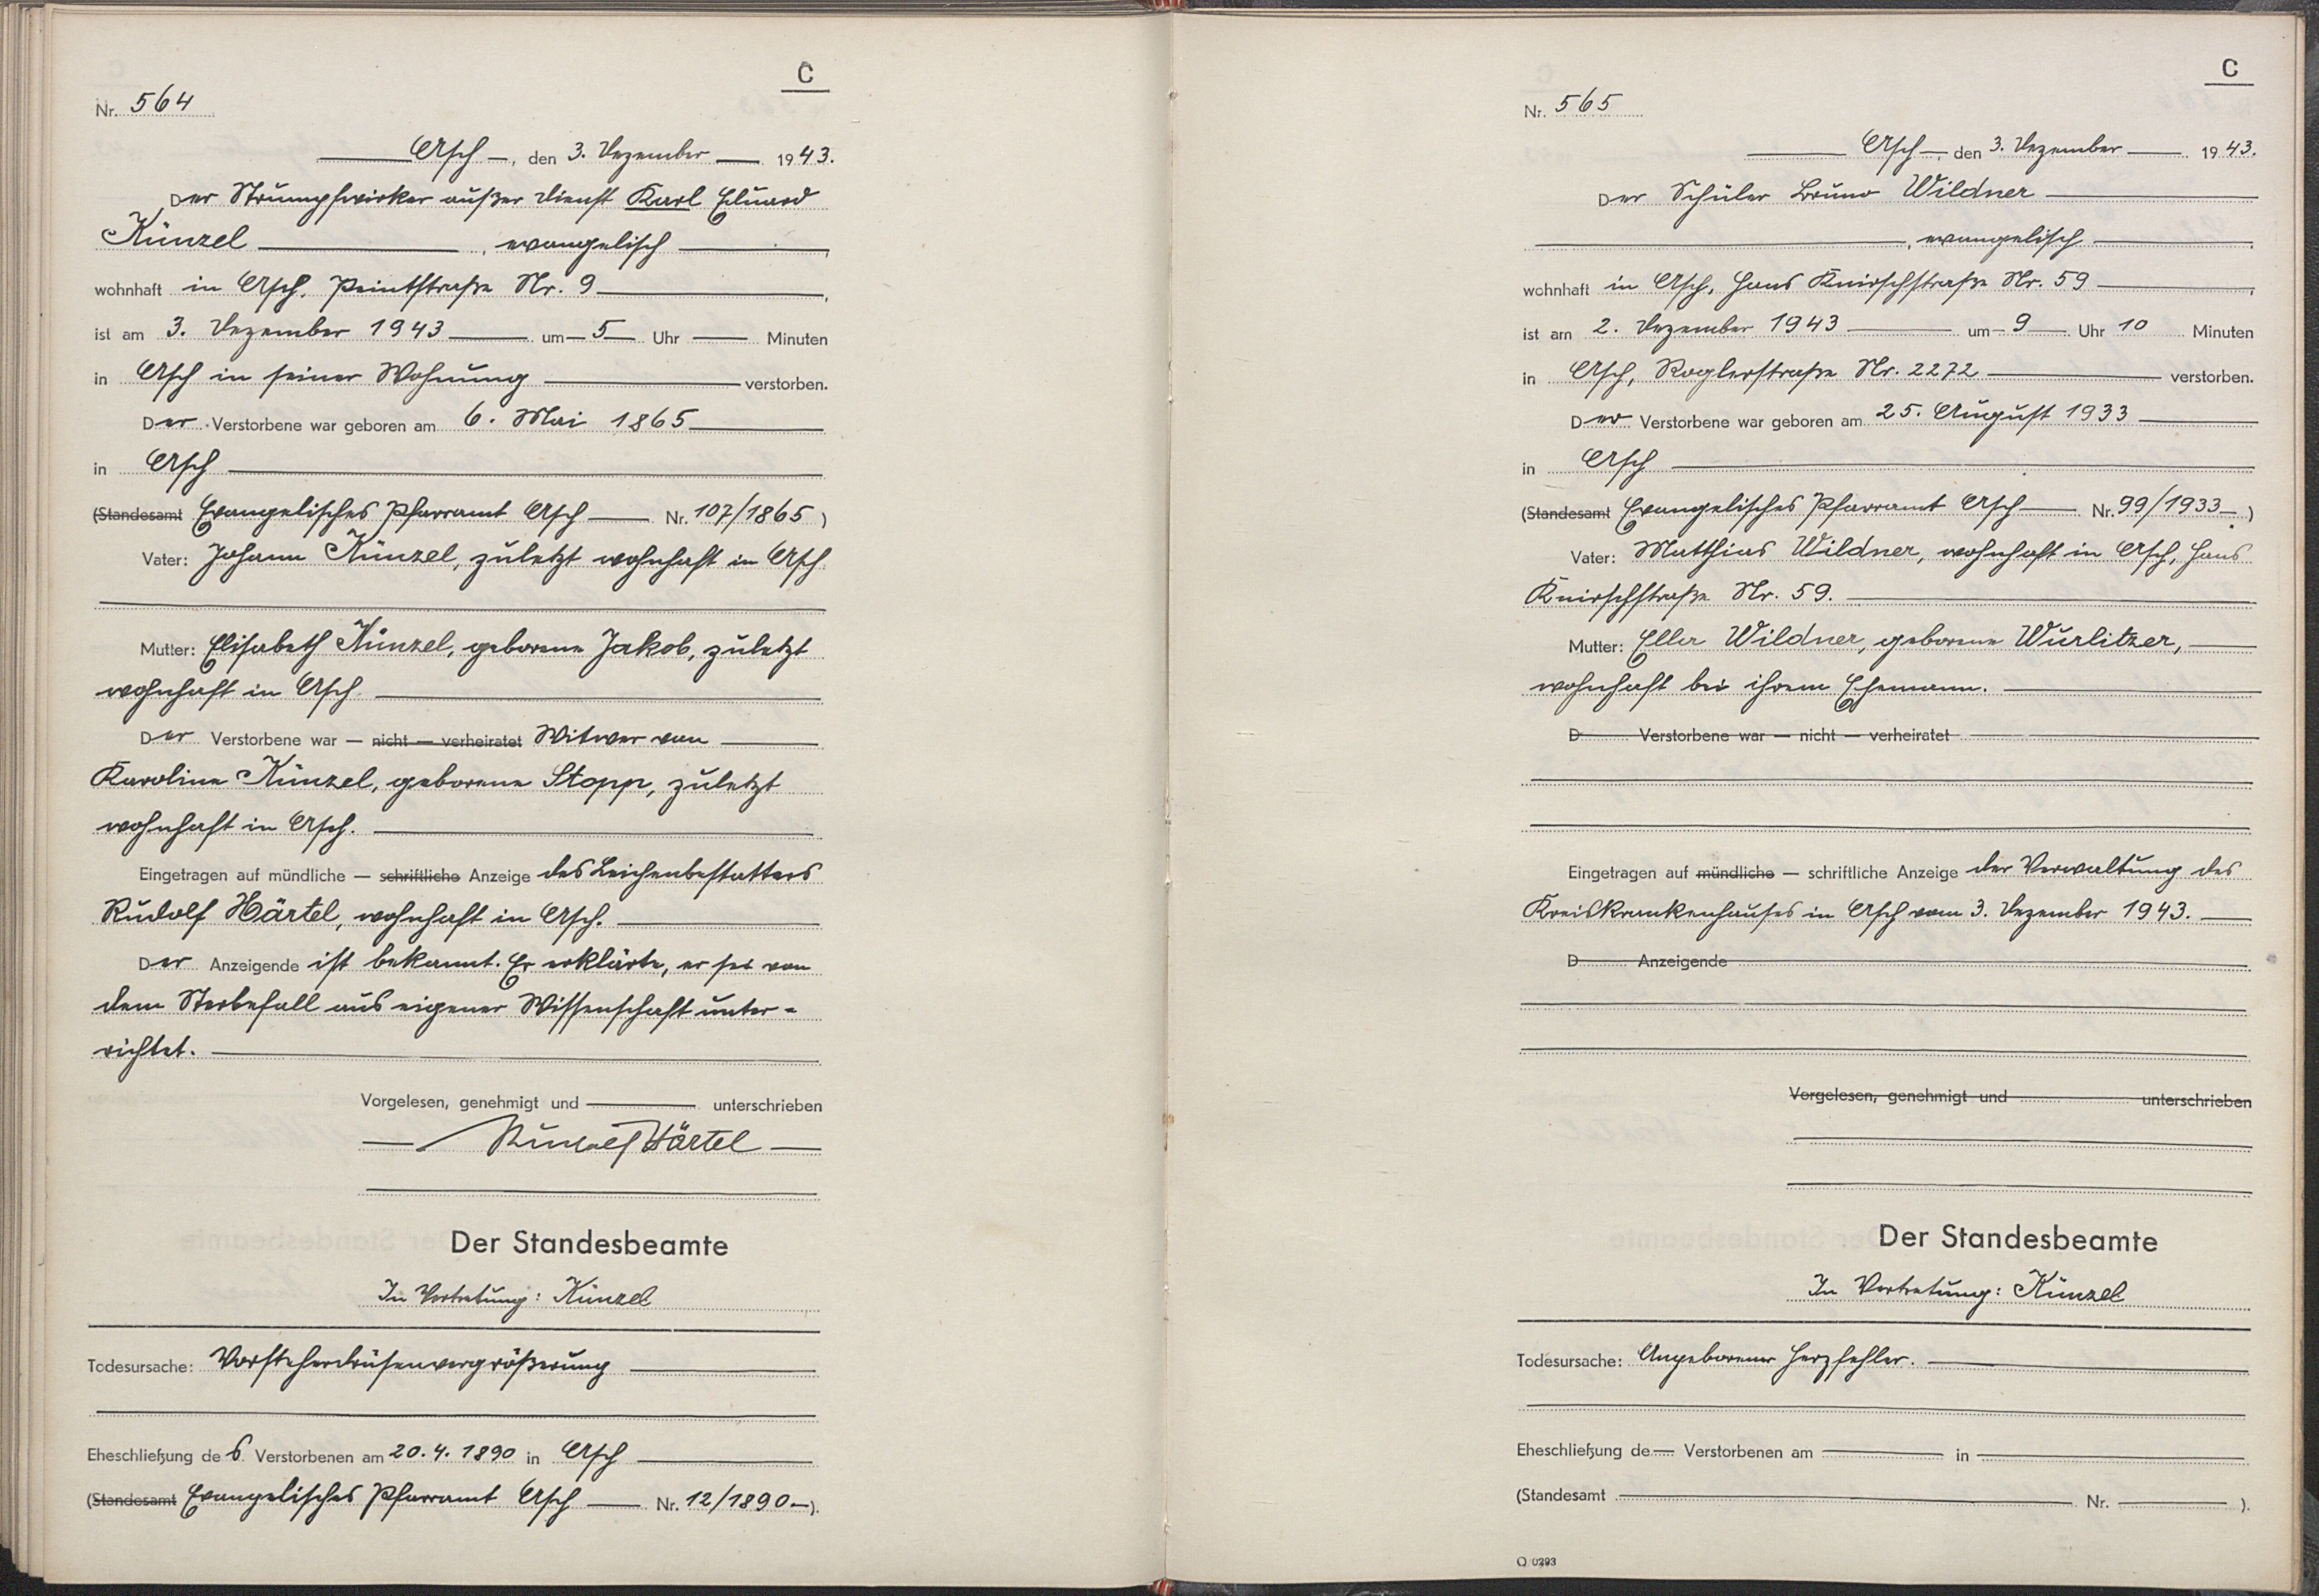 C
Nr. 564
Asch, den 3. Dezember 1943.
Der Strumpfwirker außer Dienst Karl Eduard
Künzel, evangelisch,
wohnhaft in Asch, Peintstraße Nr. 9,
ist am 3. Dezember 1943 um 5 Uhr — Minuten
in Asch in seiner Wohnung verstorben.
Der Verstorbene war geboren am 6. Mai 1865
in Asch
(Standesamt Evangelisches Pfarramt Asch — Nr. 107/1865)
Vater: Johann Künzel, zuletzt wohnhaft in Asch
Mutter: Elisabeth Künzel, geborene Jakob, zuletzt
wohnhaft in Asch
Der Verstorbene war — nicht — verheiratet Witwer von
Karoline Künzel, geborene Stopp, zuletzt
wohnhaft in Asch.
Eingetragen auf mündliche — schriftliche Anzeige des Leichenbestatters
Rudolf Härtel, wohnhaft in Asch.
Der Anzeigende ist bekannt. Er erklärte, er sei von
dem Sterbefall aus eigener Wissenschaft unter-
richtet.
Vorgelesen, genehmigt und — unterschrieben
Rudolf Härtel
Der Standesbeamte
In Vertretung: Künzel
Todesursache: Vorsteherdrüsenvergrößerung
Eheschließung des Verstorbenen am 20.4.1890 in Asch
(Standesamt Evangelisches Pfarramt Asch — Nr. 12/1890—).
C
Nr. 565
Asch, den 3. Dezember 1943.
Der Schüler Bruno Wildner
, evangelisch,
wohnhaft in Asch, Hans Knirschstraße Nr. 59,
ist am 2. Dezember 1943 um 9 Uhr 10 Minuten
in Asch, Roglerstraße Nr. 2272 verstorben.
Der Verstorbene war geboren am 25. August 1933
in Asch
(Standesamt Evangelisches Pfarramt Asch — Nr. 99/1933—)
Vater: Matthias Wildner, wohnhaft in Asch, Hans
Knirschstraße Nr. 59.
Mutter: Ella Wildner, geborene Wurlitzer,
wohnhaft bei ihrem Ehemann.
D Verstorbene war — nicht — verheiratet
Eingetragen auf mündliche — schriftliche Anzeige der Verwaltung des
Kreiskrankenhauses in Asch vom 3. Dezember 1943.
D Anzeigende
Vorgelesen, genehmigt und unterschrieben
Der Standesbeamte
In Vertretung: Künzel
Todesursache: Angeborener Herzfehler.
Eheschließung de— Verstorbenen am — in —
(Standesamt — Nr. —).
Q 0293